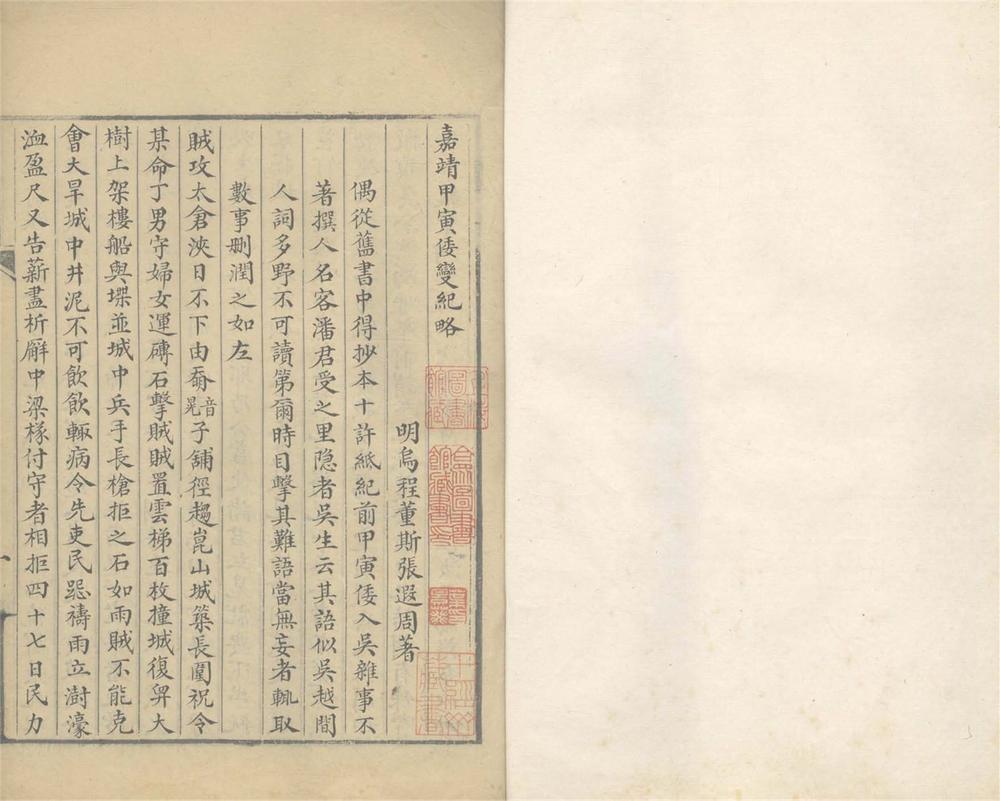 嘉靖甲寅倭變紀略
明烏程董斯張遐周著
偶從舊書中得抄本十許紙紀前甲寅倭入吳雜事不
著撰人名客潘君受之里隐者吳生云其語似吳越間
人詞多野不可讀第爾時目擊其難語當無妄者輒取
數事刪潤之如左
賊攻太倉浹日不下由奣音晃子舖徑趨崑山城築長圍祝令
某命丁男守婦女運磚石擊賊賊置雲梯百枚撞城復舁大
樹上架樓船與堞並城中兵手長槍拒之石如雨賊不能克
會大旱城中井泥不可飲飲輒病令先吏民懇禱雨立澍濠
洫盈尺又告薪盡析廨中梁椽付守者相拒四十七日民力